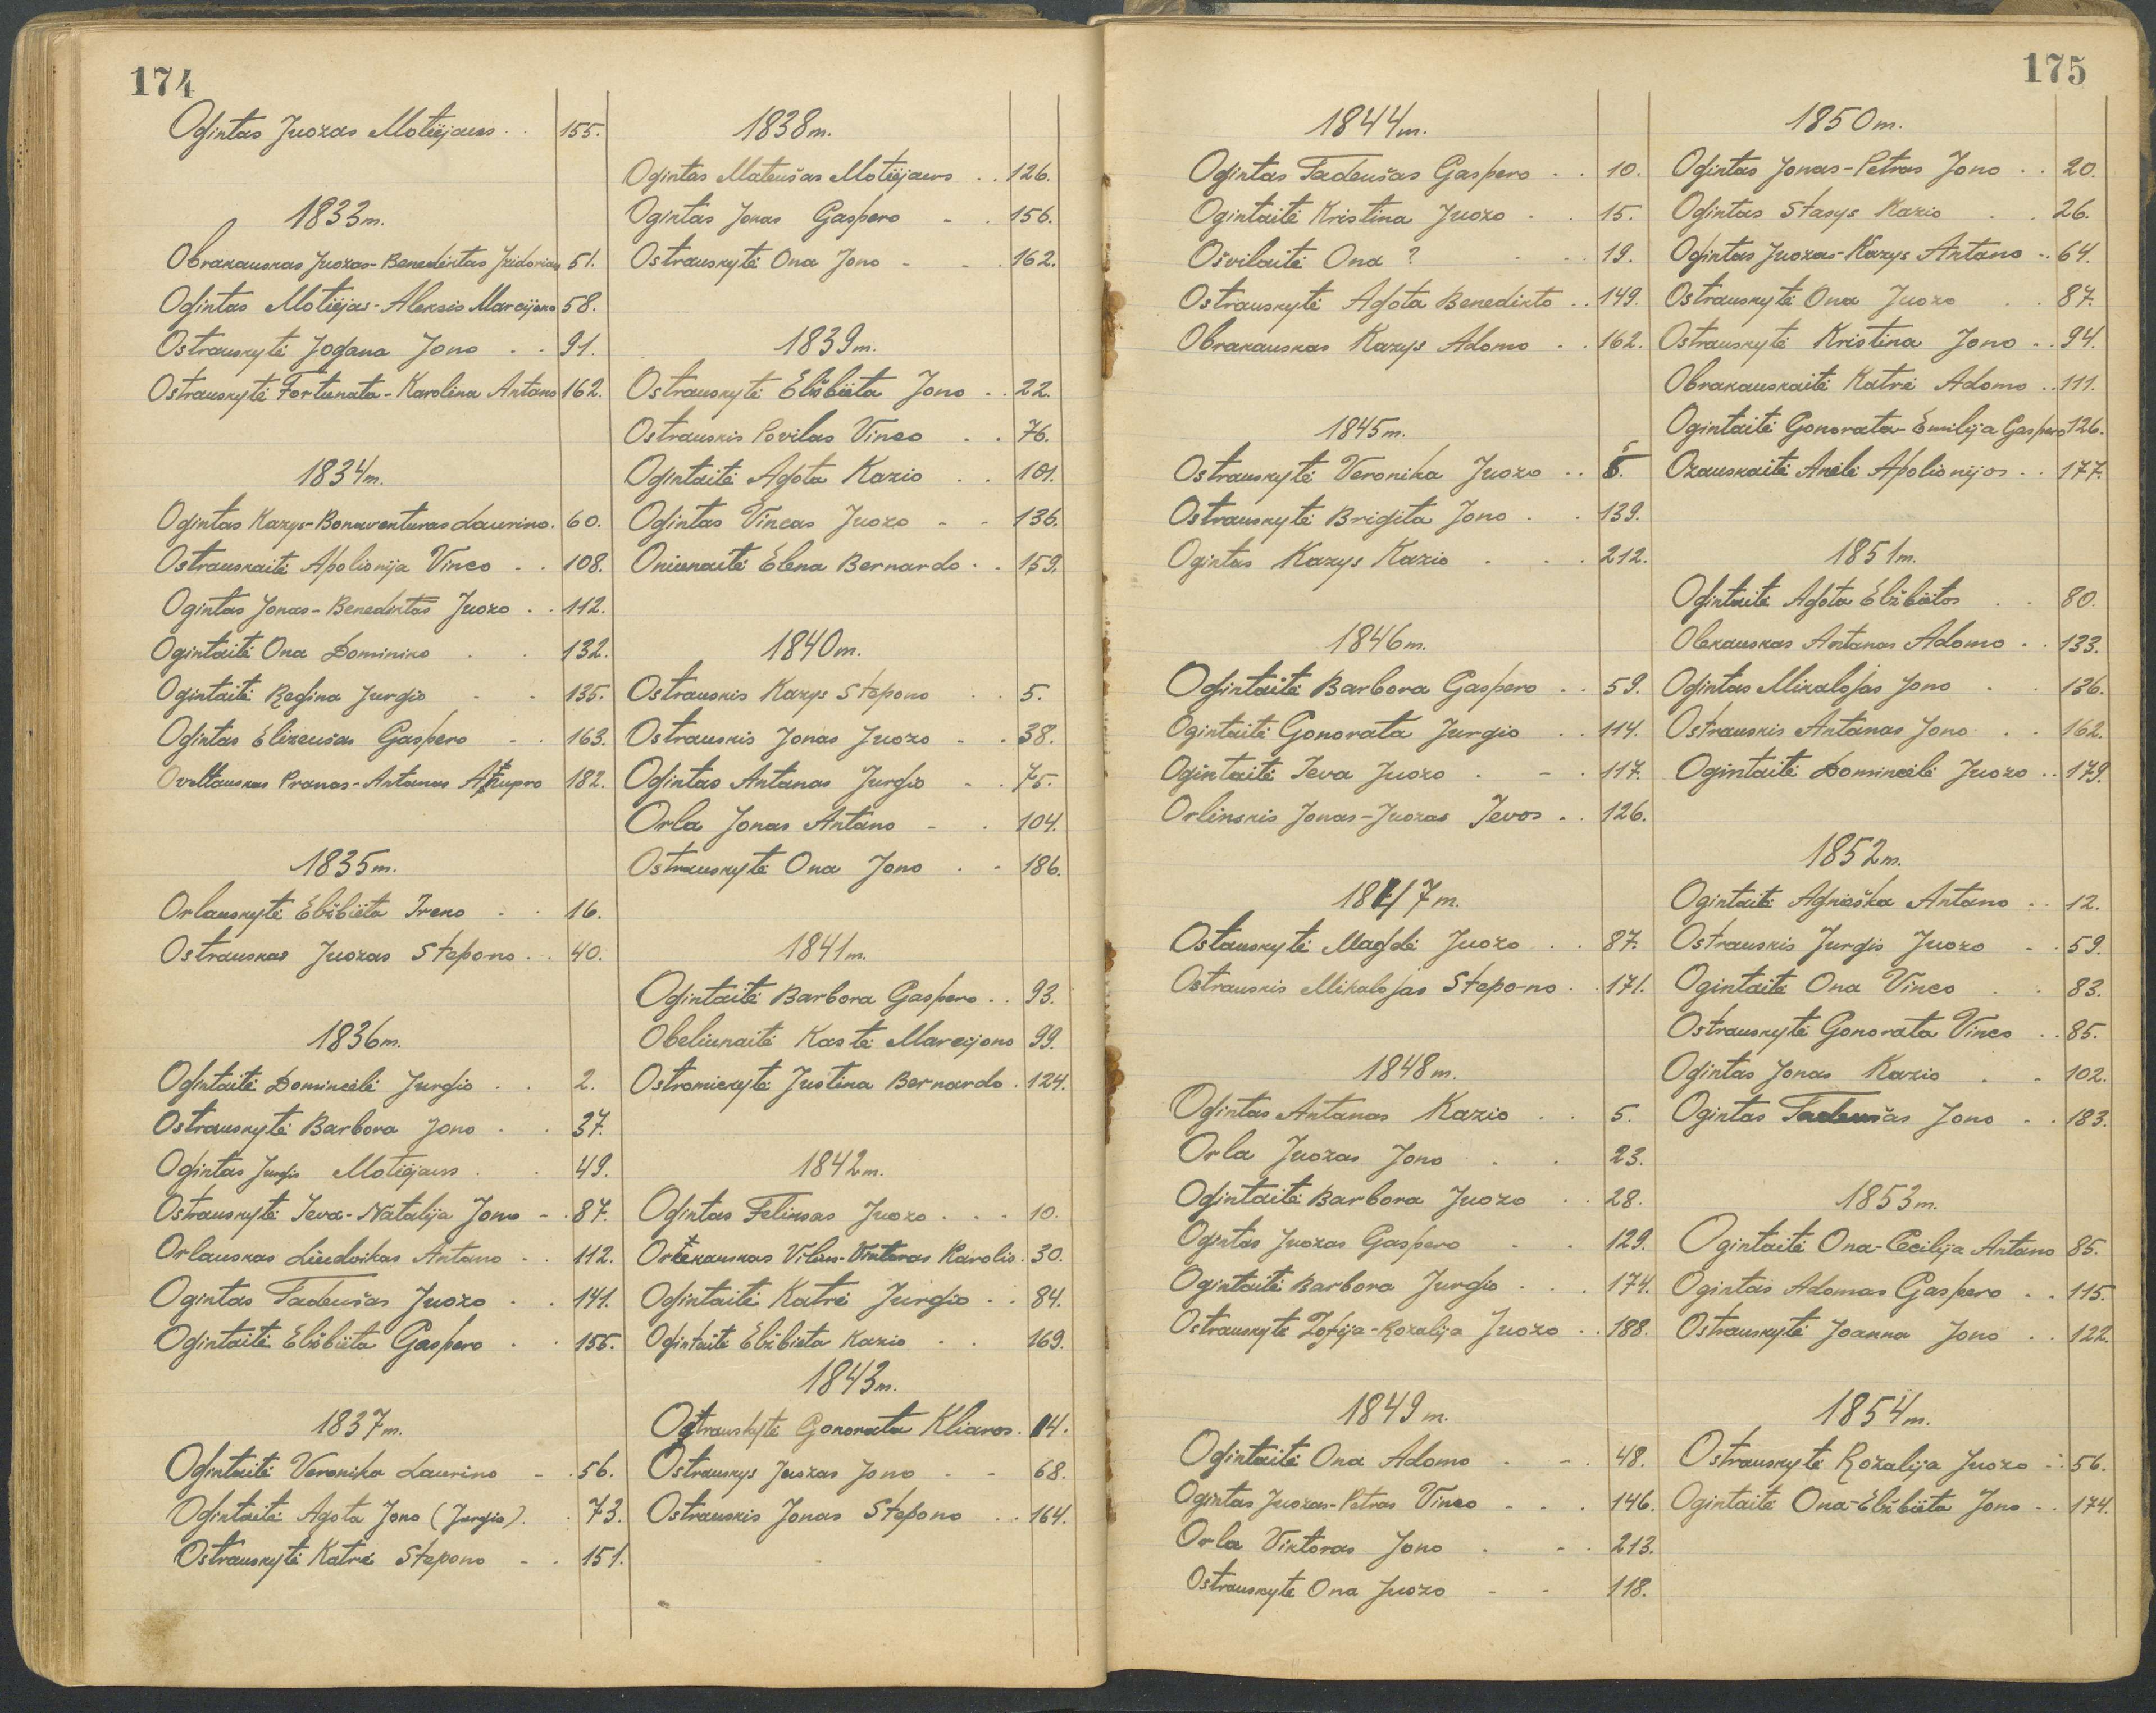 174
Ogintas Juozas Motiėjaus . . 155.
1833 m.
Obrakauskas Juozas-Benediktas Izidoriaus 51.
Ogintas Motiėjas-Aleksis Marcijono 58.
Ostrauskytė Jogana Jono . . 91.
Ostrauskytė Fortunata-Karolina Antano 162.
1834 m.
Ogintas Kazys-Bonaventuras Laurino. 60.
Ostrauskaitė Apolionija Vinco . . 108.
Ogintas Jonas-Benediktas Juozo . . 112.
Ogintaitė Ona Dominiko . . 132.
Ogintaitė Regina Jurgio . . 135.
Ogintas Elizeušas Gaspero . . 163.
Pranas-Antanas 182.
1835 m.
Orlauskytė Elžbieta Ireno . . 16.
Ostrauskas Juozas Stepono . . 40.
1836 m.
Ogintaitė Domincėlė Jurgio . . 2.
Ostrauskytė Barbora Jono . . 37.
Ogintas Jurgis Motiėjaus . . 49.
Ostrauskytė Ieva-Natalija Jono . . 87.
Orlauskas Liudvikas Antano . . 112.
Ogintas Tadeušas Juozo . . 141.
Ogintaitė Elžbieta Gaspero . . 155.
1837 m.
Ogintaitė Veronika Laurino . . 56.
Ogintaitė Agota Jono (Jurgio) . . 73.
Ostrauskytė Katrė Stepono . . 151.
1838 m.
Ogintas Mateušas Motiėjaus . . 126.
Ogintas Jonas Gaspero . . 156.
Ostrauskytė Ona Jono . . 162.
1839 m.
Ostrauskytė Elžbieta Jono . . 22.
Ostrauskis Povilas Vinco . . 76.
Ogintaitė Agota Kazio . . 101.
Ogintas Vincas Juozo . . 136.
Oniūnaitė Elena Bernardo . . 159.
1840 m.
Ostrauskis Kazys Stepono . . 5.
Ostrauskis Jonas Juozo . . 38.
Ogintas Antanas Jurgio . . 75.
Orla Jonas Antano . . 104.
Ostrauskytė Ona Jono . . 186.
1841 m.
Ogintaitė Barbora Gaspero . . 93.
Obeliunaitė Kastė Marcijono 99.
Ostromickytė Justina Bernardo . 124.
1842 m.
Ogintas Feliksas Juozo . . . 10.
Vilius-Viktoras Karolio . 30.
Ogintaitė Katrė Jurgio . . 84.
Ogintaitė Elžbieta Kazio . . 169.
1843 m.
Ostrauskytė Gonorata Kliaros . 14.
Ostrauskys Juozas Jono . . 68.
Ostrauskis Jonas Stepono . . 164.
175
1844 m.
Ogintas Tadeušas Gaspero . . 10.
Ogintaitė Kristina Juozo . . 15.
Ošvilaitė Ona ? . . 19.
Ostrauskytė Agota Benedikto . . 149.
Obrakauskas Kazys Adomo . . 162.
1845 m.
Ostrauskytė Veronika Juozo . . 5.
Ostrauskytė Brigita Jono . . 139.
Ogintas Kazys Kazio . . . 212.
1846 m.
Ogintaitė Barbora Gaspero . . 59.
Ogintaitė Gonorata Jurgio . . 114.
Ogintaitė Ieva Juozo . . . 117.
Orlinskis Jonas-Juozas Ievos . . 126.
1847 m.
Ostauskytė Magdė Juozo . . 87.
Ostrauskis Mikalojas Stepono . . 171.
1848 m.
Ogintas Antanas Kazio . . 5.
Orla Juozas Jono . . 23.
Ogintaitė Barbora Juozo . . 28.
Ogintas Juozas Gaspero . . 129.
Ogintaitė Barbora Jurgio . . . 174.
Ostrauskytė Zofija-Rozalija Juozo . . 188.
1849 m.
Ogintaitė Ona Adomo . . . 48.
Ogintas Juozas-Petras Vinco . . . 146.
Orla Viktoras Jono . . . 213.
Ostrauskytė Ona Juozo . . 118.
1850 m.
Ogintas Jonas-Petras Jono . . 20.
Ogintas Stasys Kazio . . 26.
Ogintas Juozas-Kazys Antano . . 64.
Ostrauskytė Ona Juozo . . 87.
Ostrauskytė Kristina Jono . . 94.
Obrakauskaitė Katrė Adomo . . 111.
Ogintaitė Gonorata-Emilija Gaspero 126.
Ožauskaitė Anėlė Apolionijos . . 177.
1851 m.
Ogintaitė Agota Elžbietos . . 80.
Obrkauskas Antanas Adomo . . 133.
Ogintas Mikalojas Jono . . 136.
Ostrauskis Antanas Jono . . 162.
Ogintaitė Domincėlė Juozo . . 179.
1852 m.
Ogintaitė Agnieška Antano . . 12.
Ostrauskis Jurgis Juozo . . 59.
Ogintaitė Ona Vinco . . 83.
Ostrauskytė Gonorata Vinco . . 85.
Ogintas Jonas Kazio . . 102.
Ogintas Tadeušas Jono . . 183.
1853 m.
Ogintaitė Ona-Cecilija Antano 85.
Ogintas Adomas Gaspero . . 115.
Ostrauskytė Joanna Jono . . 122.
1854 m.
Ostrauskytė Rozalija Juozo . . 56.
Ogintaitė Ona-Elžbieta Jono . . 174.